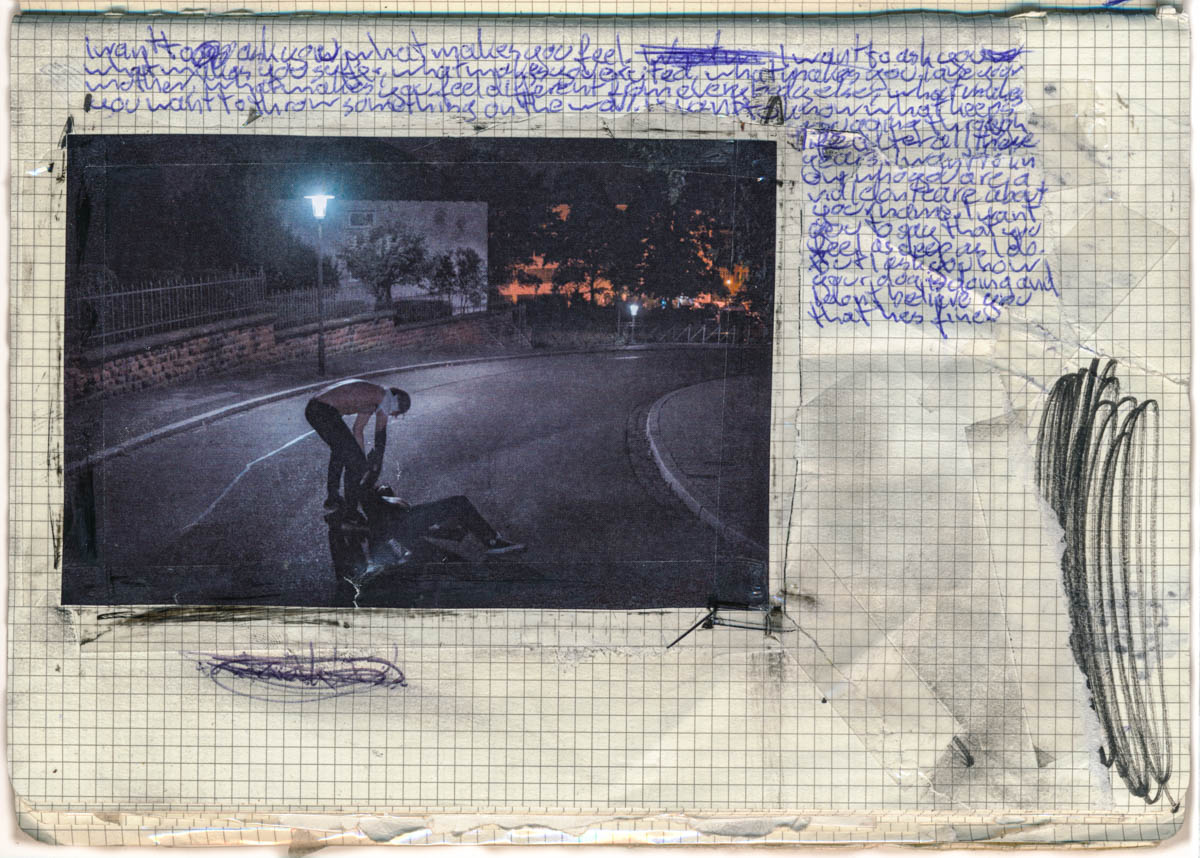 I want to ask you what makes you feel. I want to ask you
what you what makes you excited, what makes you love your
mother. what makes you feel different from everybody else. what makes
you want to throw something on the wall. I want to know what keeps
you going through
life after all those
years. I want to kn
ow who you are a
nd I dont care about
your name. I want
you to say that you
feel as deep as I do.
But I ask you how
your dog is doing and
I dont believe you
that hes fine.